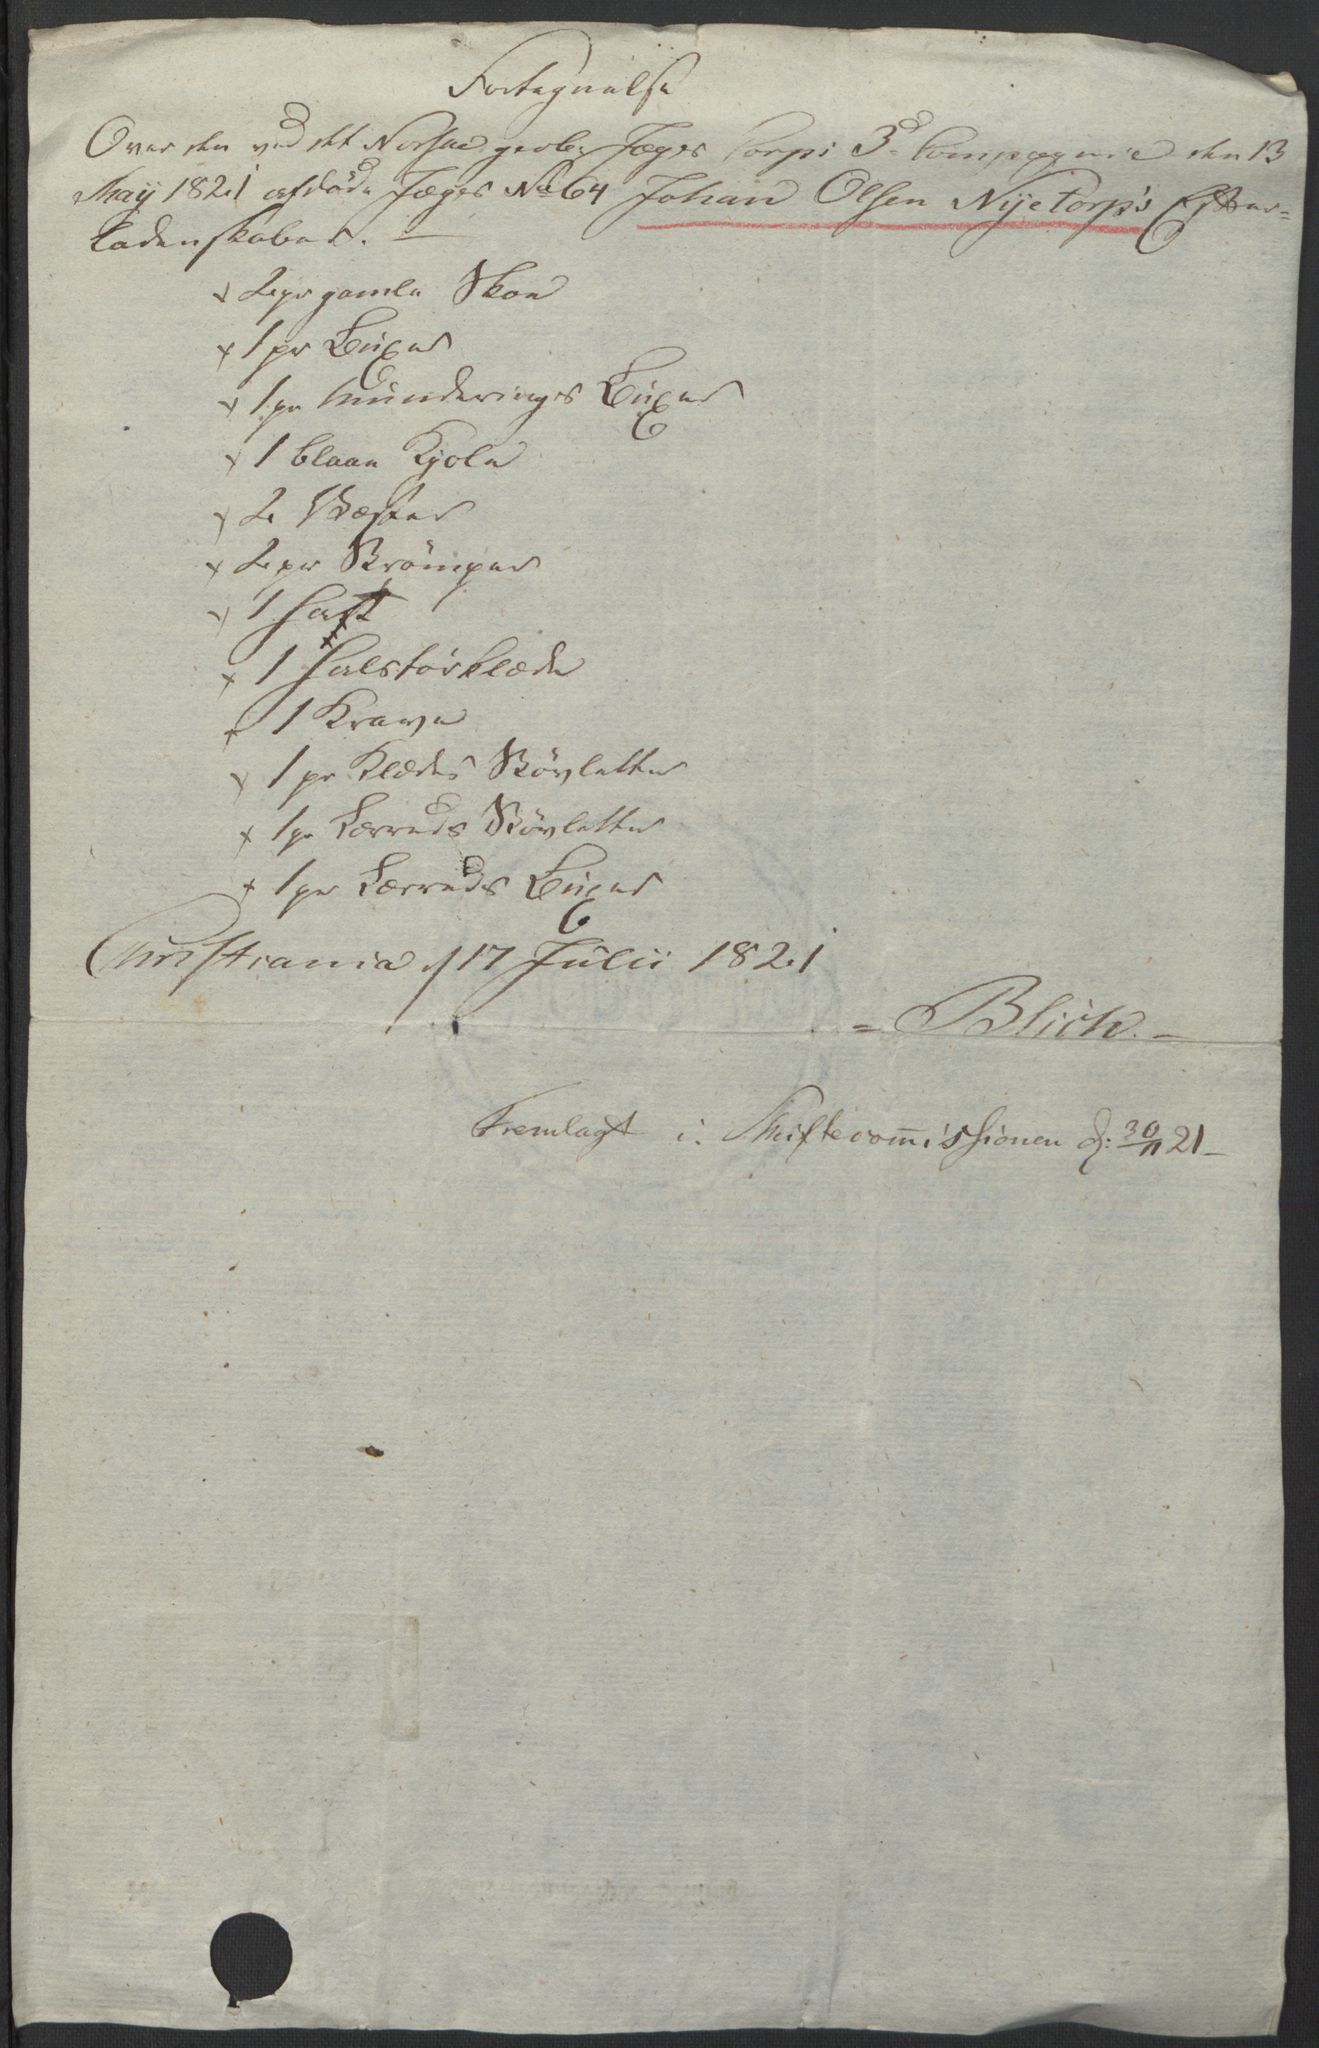 Fortegnelse
Over den ved det Norske gevb: Jæger Corps 3d Compagnie den 13
Maij 1821 afdöde Jæger No 64 Johan Olsen Nijetorp's Efter=
ladenskaber. —
x 2 pr gamle Skoe
x 1 pr Buxer
x 1 pr Munderings Buxer
x 1 blaae Kjole
x 2 Væster
x 2 pr Strömper
x 1 Hatt
x 1 Halstörklæde
x 1 Krave
x 1 pr Klædes Stövletter
x 1 pr Lærreds Stövletter
x 1 pr Lærreds Buxer
Christiania d 17 Julii 1821
= Blich. —
Fremlagt i Skiftecommissionen d: 30/11 21 —